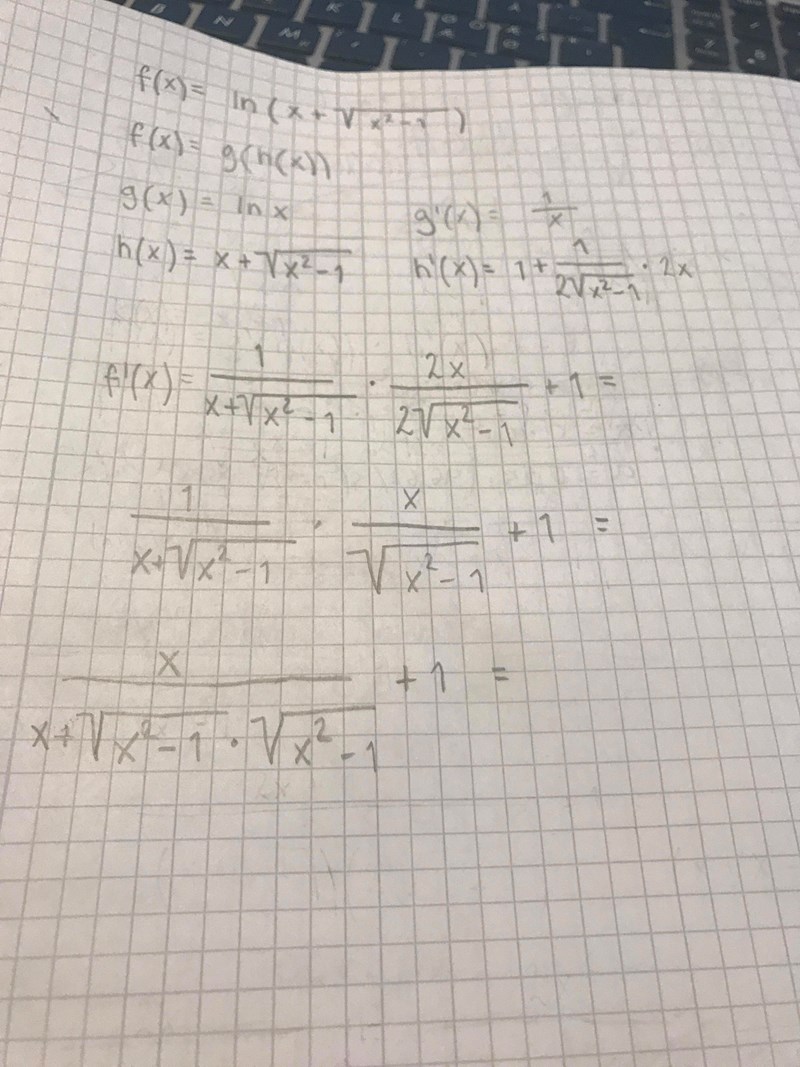 f(x) = ln(x + √(x² - 1))
f(x) = g(h(x))
g(x) = ln x g'(x) = 1/x
h(x) = x + √(x² - 1) h'(x) = 1 + 1/(2√(x² - 1)) · 2x
f'(x) = 1/(x + √(x² - 1)) · 2x/(2√(x² - 1)) + 1 =
1/(x + √(x² - 1)) · x/√(x² - 1) + 1 =
x/(x + √(x² - 1) · √(x² - 1)) + 1 =